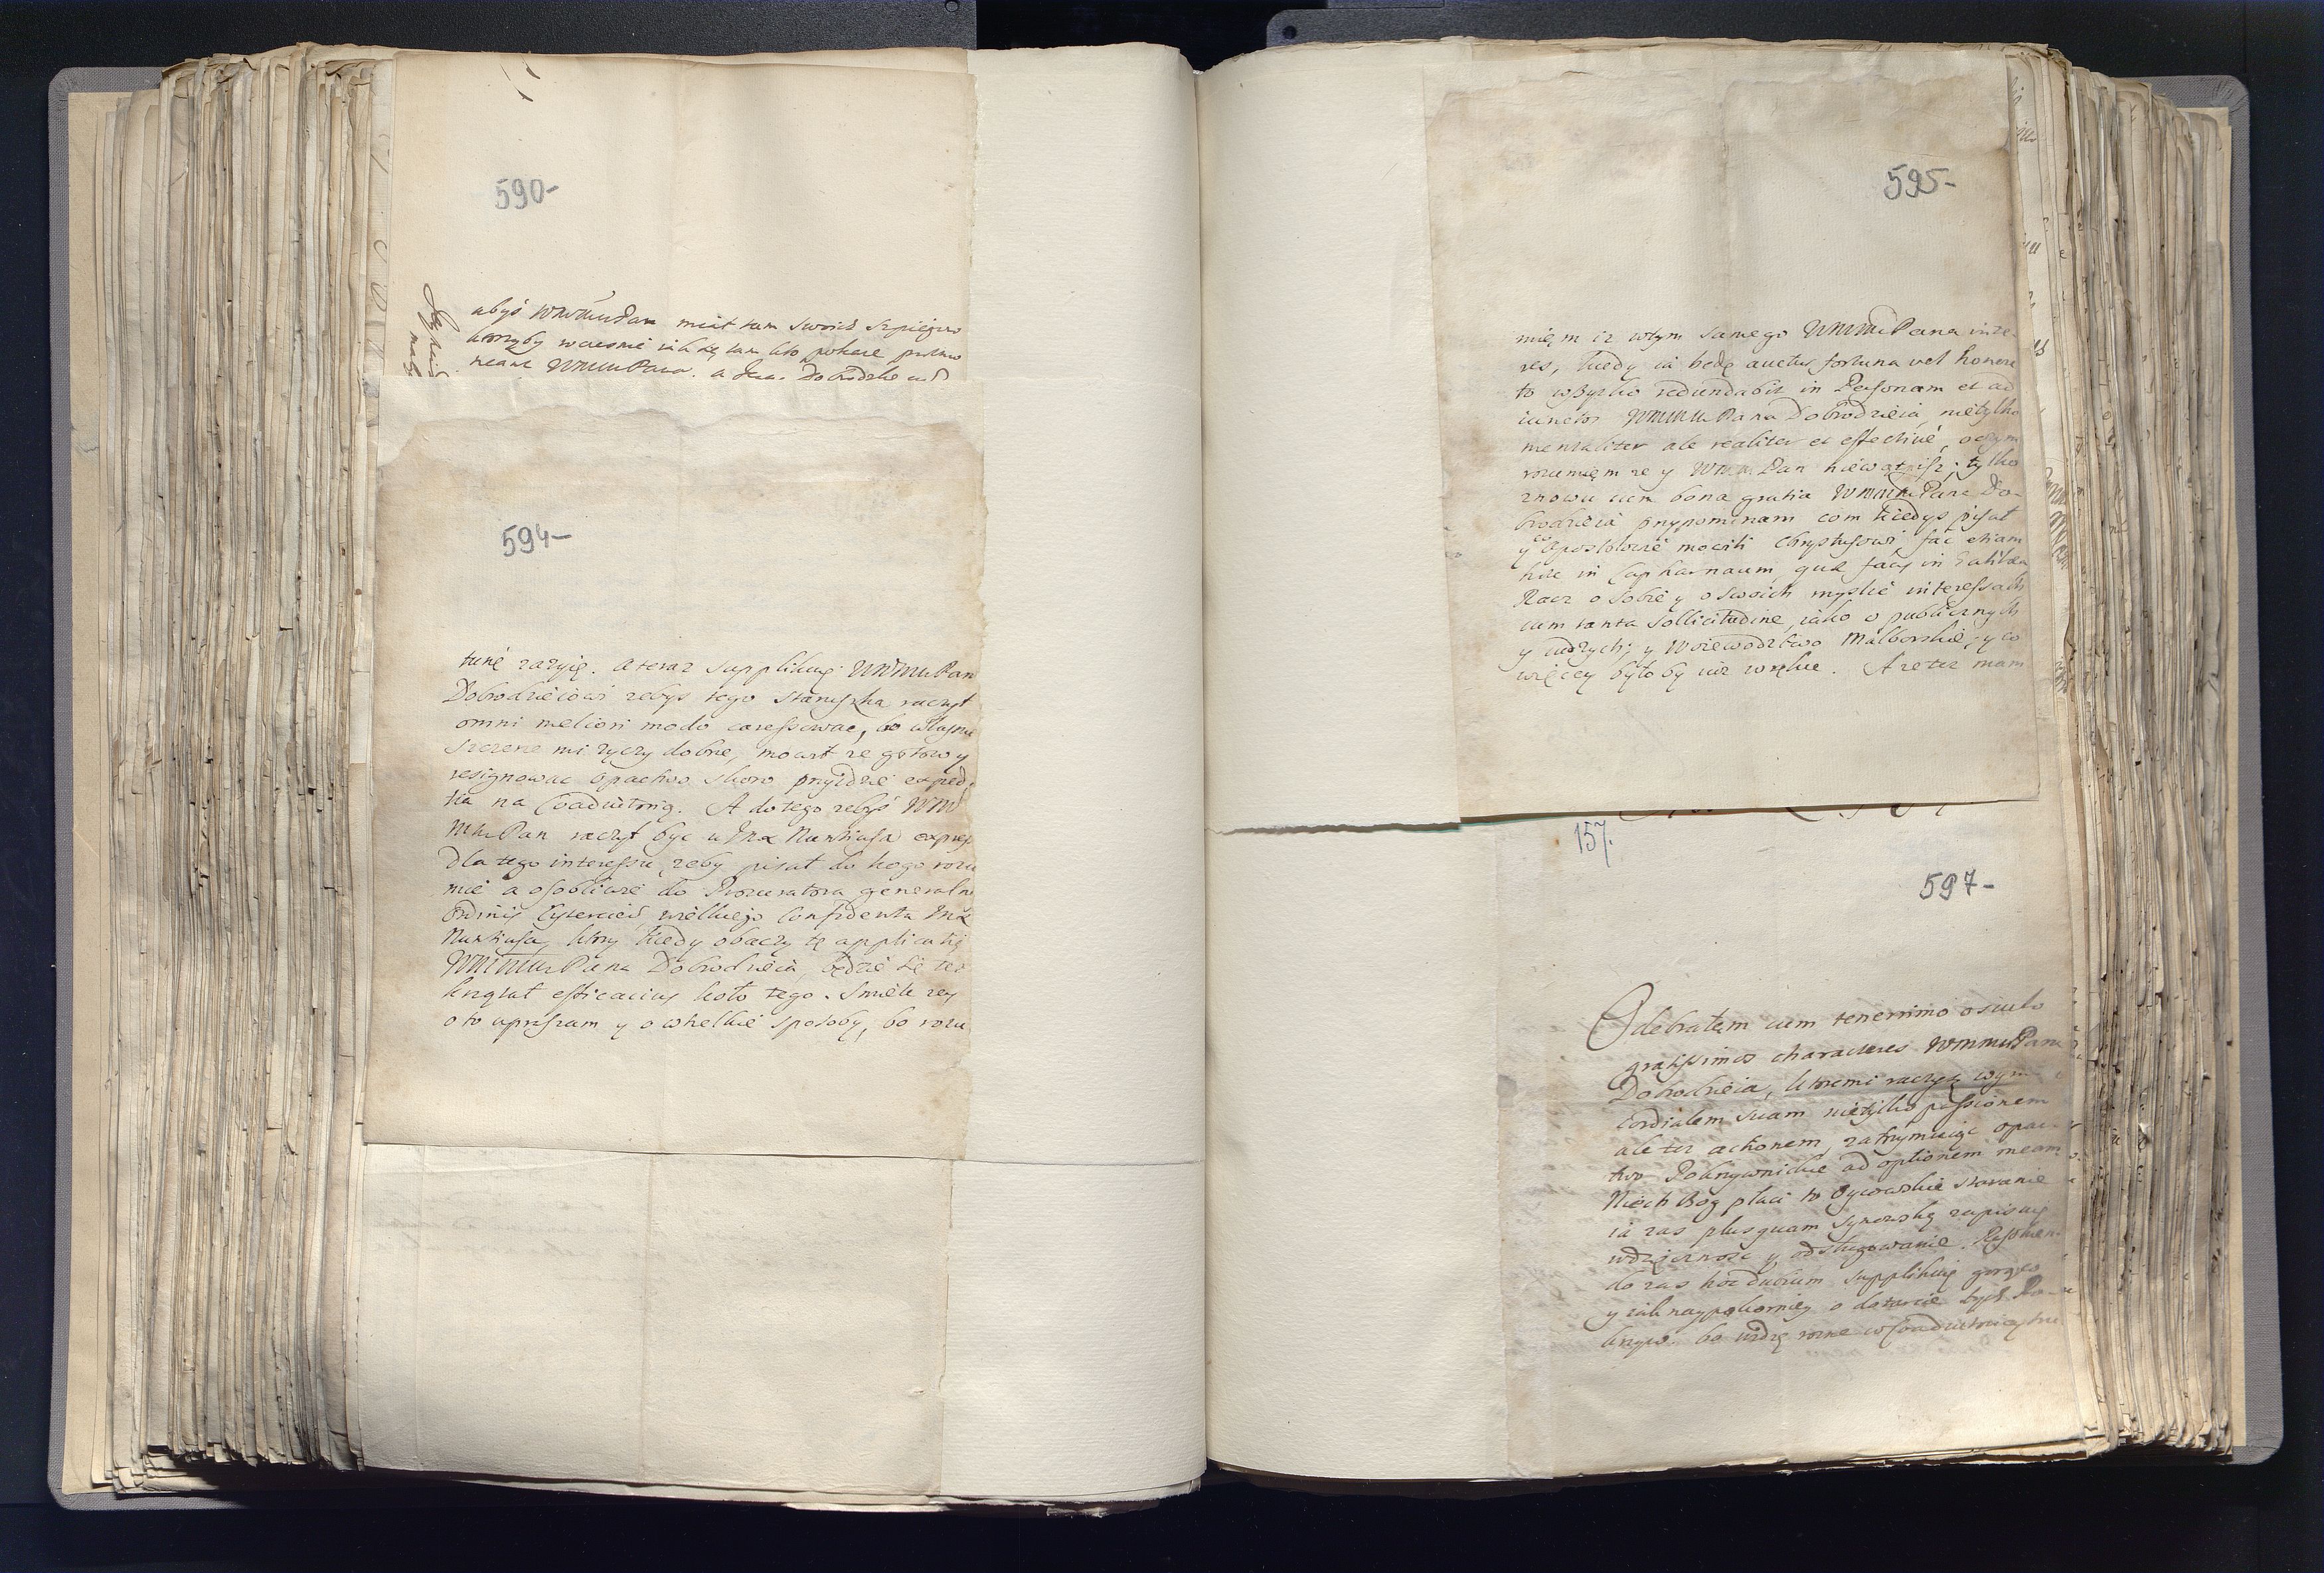 590-
abyś WMMuPan miał tam swoich szpiegow
ktorzyby wczesnie iak się tam kto pokaze
WMMuPana. a Dobrodzie
594-
tunę zazyię. A teraz supplikuię WMMuPan
Dobrodzieiowi zebys tego staruszka raczył
omni meliori modo caressować, bo własnie
szczerze mi zyczy dobrze, mowił ze gotow y
resignowac opactwo skoro przyidzie exped
tia na Coadiutorią. A do tego zebyś WM
MuPan raczył być u Nunciusa expres
dla tego interessu, zeby pisał do kogo rozu
mie a osobliwie do Procuratora generaln
Ordinis Cysterciens wielkiego Confidenta
Nunciusa, ktory kiedy obaczy tę applicatią
WMMMu Pana Dobrodzieia, będzie się tez
krzątał efficacius koło tego. Smiele zey
o to upraszam y o wszelkie sposoby, bo rozu
595-
mięm iz w tym samego WMMuPana inte-
res, kiedy ia będę auctus fortuna vel honore
to wszystko redundabit in Personam et ad
iunctos WMMMu Pana Dobrodzieia, nietylko
mentaliter ale realiter et effectivè, o czym
rozumięm ze y WMMu Pan niewątpisz; tylko
znowu cum bona gratia WMMMuPana Do-
brodzieia przypominam com kiedys pisał
y co Apostołowie mowili Chrystusowi fac etiam
hic in Capharnaum, quae facis in Galilaea
Racz o sobie y o swoich myslić interessach
cum tanta sollicitudine, iako o publicznych
y cudzych; y Woiewodztwo Malborskie, y co
więcey byłoby iuz w ręku. A ze tez mam
157.
597-
Odebrałęm cum tenerrimo osculo
gratissimos characteres WMMMuPana
Dobrodzieia, ktoremi raczysz
cordialem suam nietylko passionem
ale tez actionem, zatrzymuiąc opac-
two Pokrzywnickie ad optionem meam
Niech Bog płaci to Oycowskie staranie
ia zas plusquam synowską zapisuię
wdzięcznosc y odsługowanie.
do zas hoc dubium supplikuię gorąco
y iak naypokorniey o dotarcie tych Po-
krzyw. bo widzę rozne w Coadiutorią